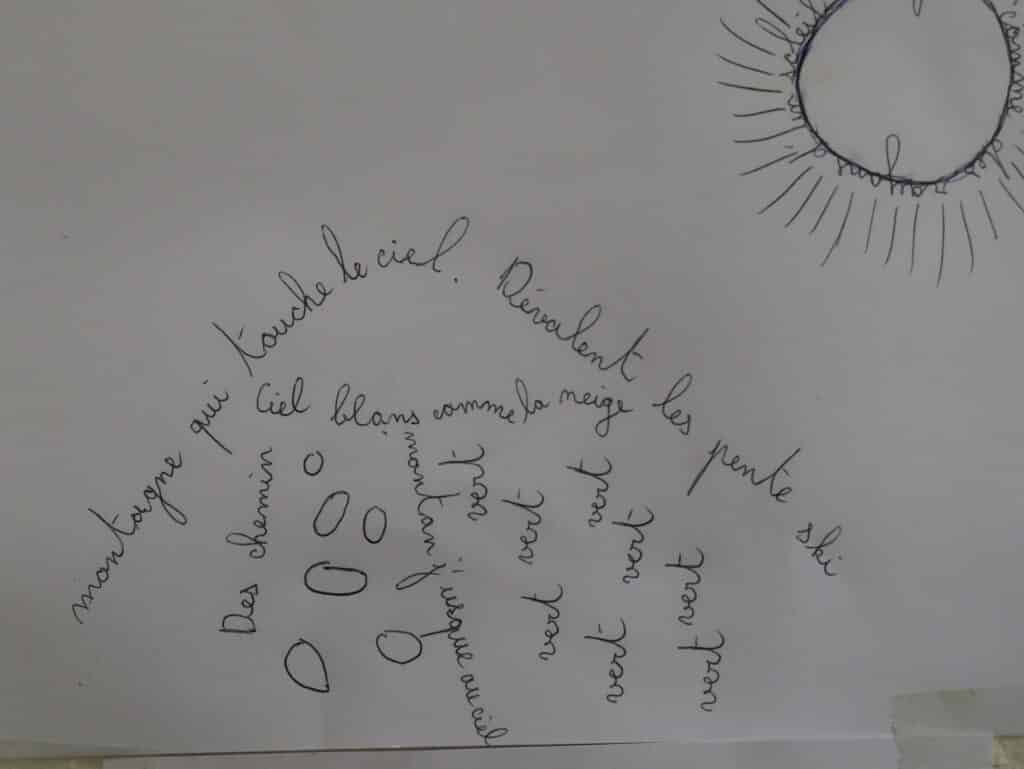 soleil
comme
montagne qui touche le ciel.
Dévalent les pente ski
Ciel blans comme la neige
Des chemin
montan j'usque au ciel
vert
vert
vert
vert
vert
vert
vert
vert